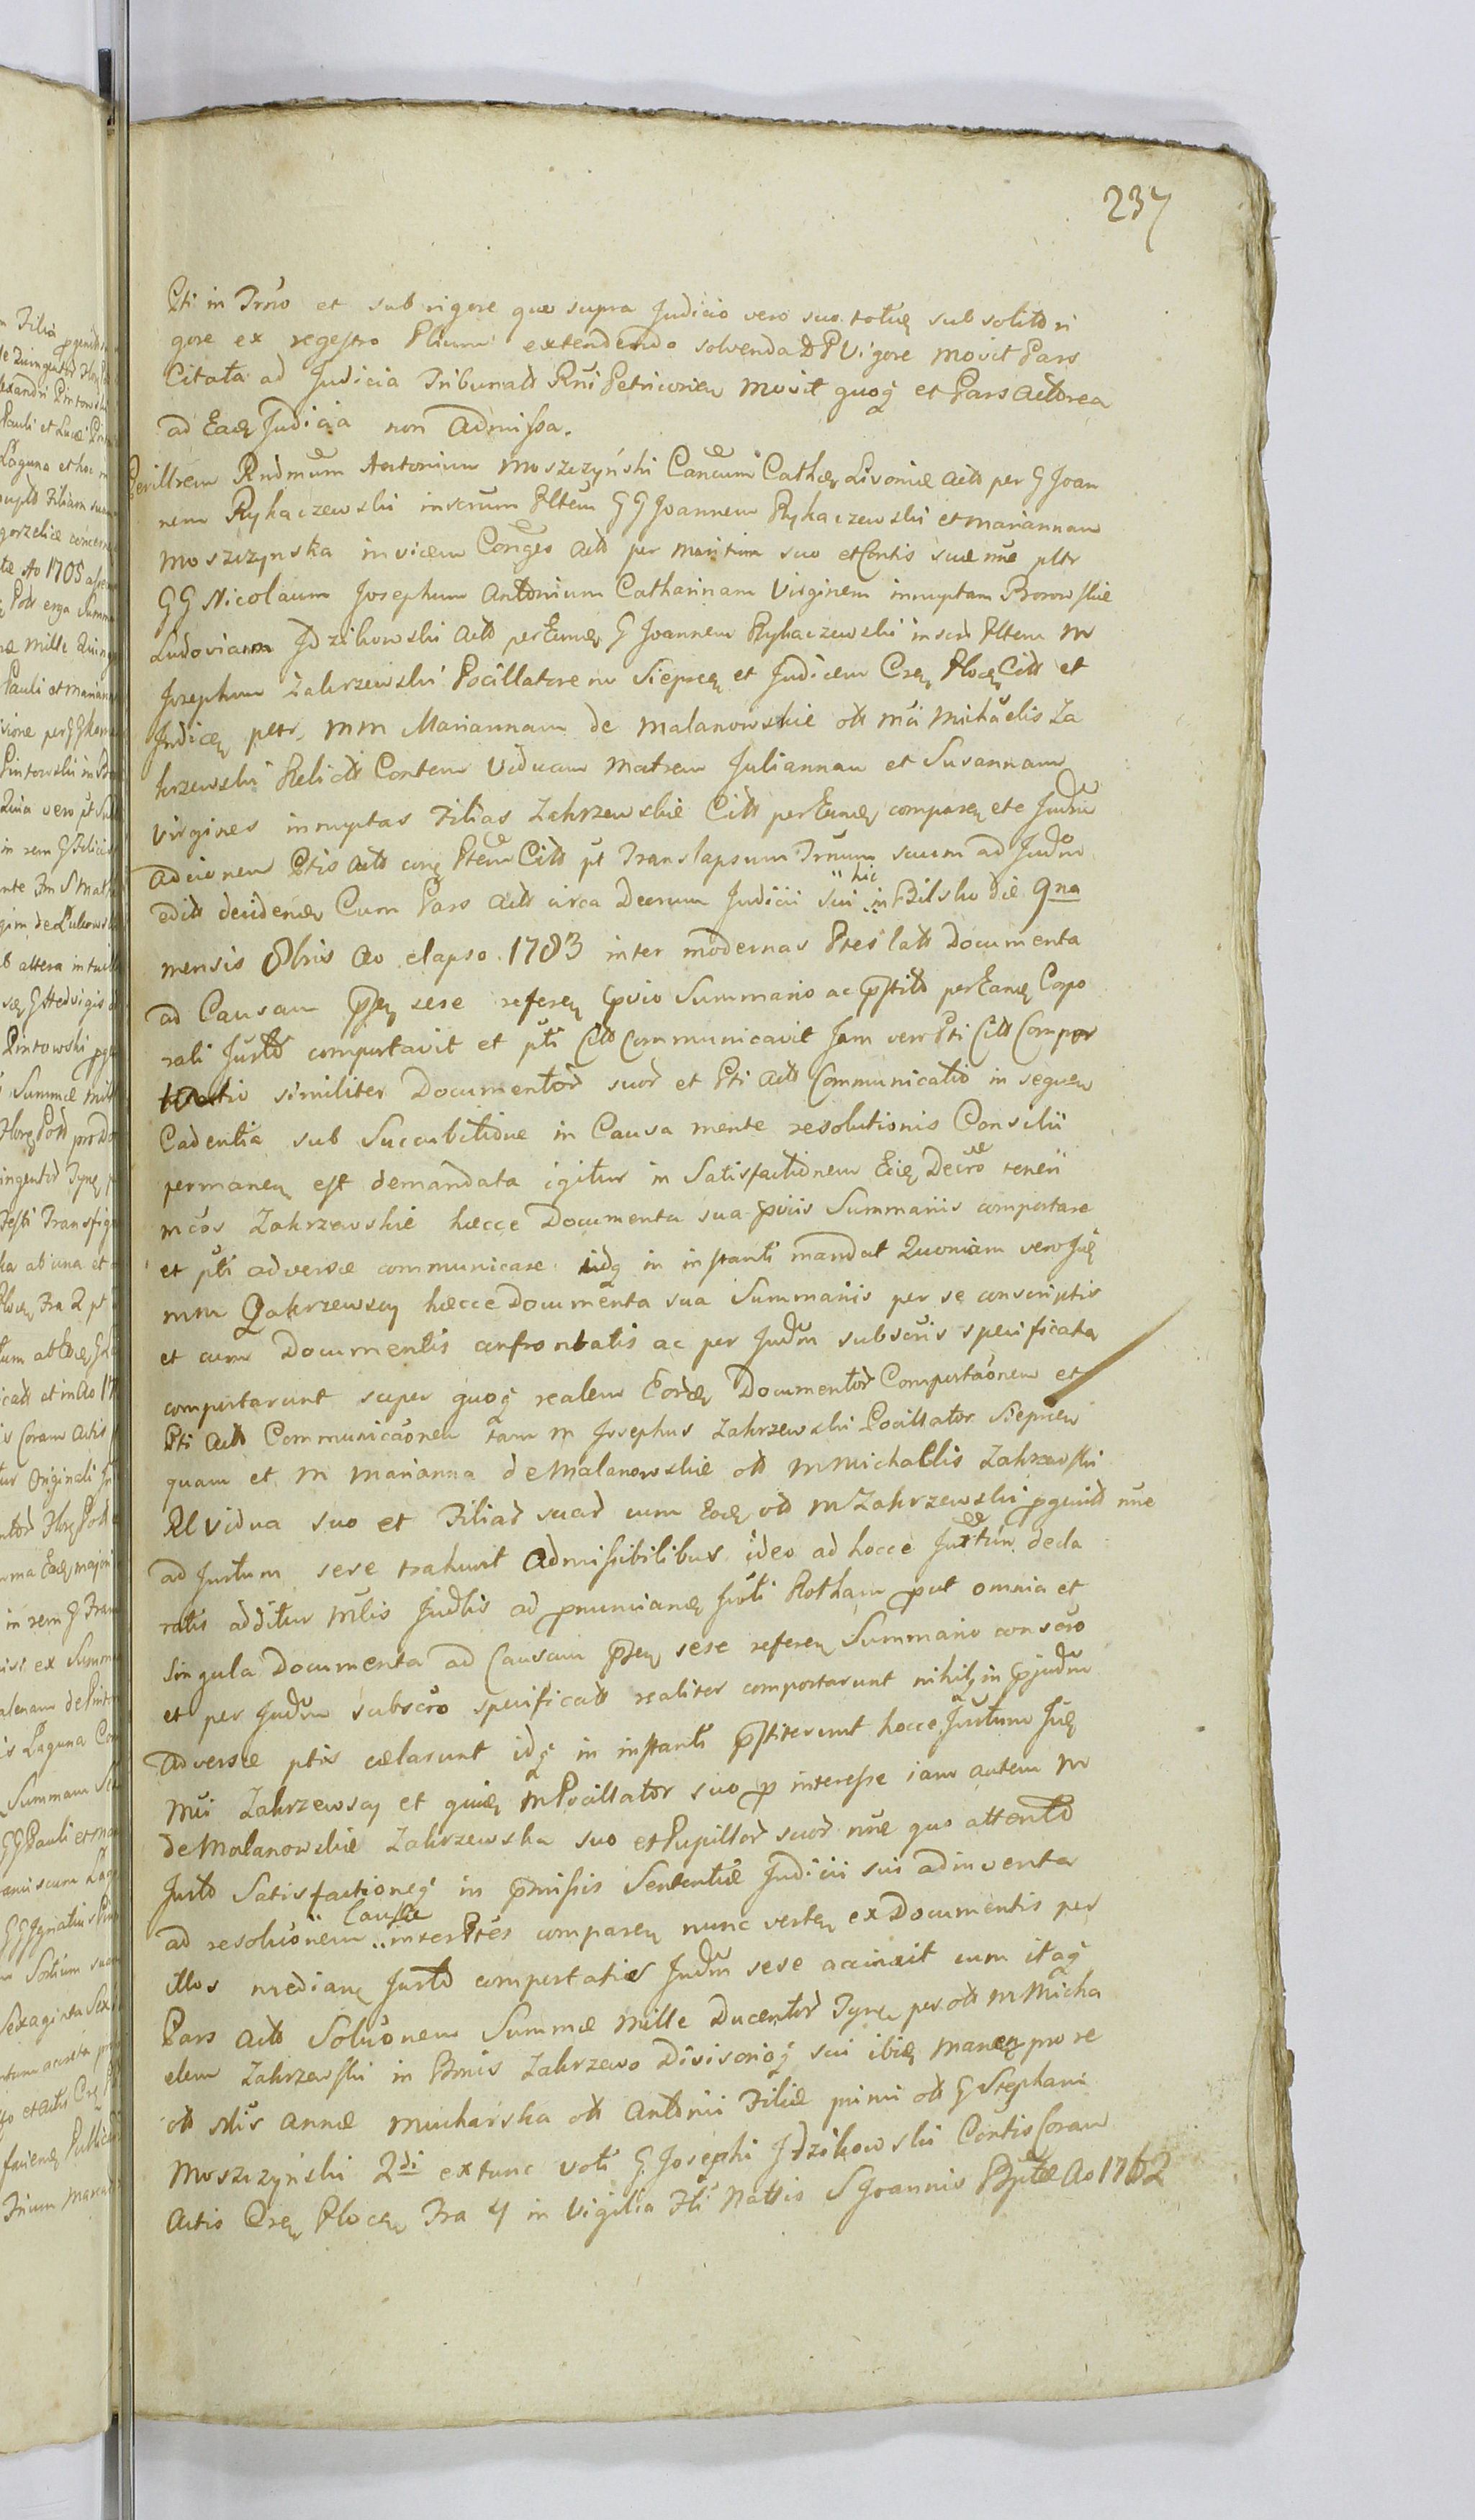 237
Pti in Trno et sub rigore quo supra Judicio vero suo totius sub solito ri
gore ex regestro Plium extendendo solvenda D P Vigore movit Pars
Citata ad Judicia Tribunats Rni Petricovien movit quoq et Pars Actorea
ad Eaq Judicia non Admissa.
Perilltrem Rndmum Antonium Moszczyński Cancum Cathe Livoniæ Actt per G Joan
nem Rykaczewski inscrum Pltem G G Joannem Rykaczewski et Mariannam
Moszczynska invicem Conges Actt per maritum suo et Contis suæ nne pltr
G G Nicolaum Josephum Antonium Catharinam Virginem innuptam Borowskie
Ludoviam Jdzikowski Actt per Eumq G Joannem Rykaczewski inscr Pltem M
Josephum Zakrzewski Pocillatorem Siepcen et Judicem Csem Plocen Citt et
Judicen pltr. MM Mariannam de Malanowskie ott Mci Michaelis Za
krzewski Relictt Contem Viduam Matrem Juliannam et Susannam
Virgines innuptas Filias Zakrzewskie Citt per Eumq comparen etc Judm
Adcionem Ptis Actt conq Ptem Citt pt Translapsum Trnum suum ad Judm
editt decidenq Cum Pars Actt circa Decrum Judicii sui hic in Bilsko die 9na
mensis 8bris Ao elapso. 1783 inter modernas Ptes latt Documenta
ad Causam psen sese referen pvio Summario ac pstito per Eamq Corpo
rali Jurto comportavit et pti Citt Communicavit Jam vero Pti Citt Compor
tatio similiter Documentor suor et Pti Actt Communicatio in sequen
Cadentia sub Succubitione in Causa mente resolutionis Consilii
permanen est demandata igitur in Satisfactionem Eiq Decro teneri
Mcos Zakrzewskie hæcce Documenta sua pviis Summariis comportare
et pti adversæ communicare idq in instanti mandat Quoniam vero Jiq
MM Zakrzewscy hæcce Documenta sua Summariis per se conscriptis
et cum Documentis confrontatis ac per Judm subscris specificata
comportarunt super quoq realem Eorq Documentor Comportaonem et
Pti Actt Communicaonem tam M Josephus Zakrzewski Pocillator Siepcen
quam et M Marianna de Malanowskie ott M Michaelis Zakrzewski
Rl Vidua suo et Filiar suar cum Eoq ott M Zakrzewski pgenit nne
ad Jurtum sese trahunt Admissibilibus ideo ad hocce Jurtum decla
ratis additur Mlis Judlis ad pnuncianq Jrti Rotham put omnia et
Singula Documenta ad Causam psen sese referen Summario conscro
et per Judm subscro specificatt realiter comportarunt nihilq in pjudm
Adversæ ptis celarunt idq in instanti pstiterunt hocce Jurtum Jiq
Mci Zakrzewscy et quiq M Pocillator suo p interesse iam autem M
de Malanowskie Zakrzewska suo et Pupillor suor nne quo attento
Jurto Satisfactioneq in pmissis Sententiæ Judicii sui adinventa
ad resoluonem Causæ inter Ptes comparen nunc verten ex Documentis per
illos median Jurto comportatis Judm sese accinxit cum itaq
Pars Actt Soluonem Summæ Mille Ducentor Tynf per ott M Micha
elem Zakrzewski in Bonis Zakrzewo Divisorioq sui ibiq manen pro re
ott Mlis Annæ Mucharska ott Antonii Filiæ primi ott G Stephani
Moszczyński 2di extunc voti G. Josephi Jdzikowski Contis Coram
Actis Csen Plocen Fra 4 in Vigilia Fti Nattis S Joannis Bptæ Ao 1762